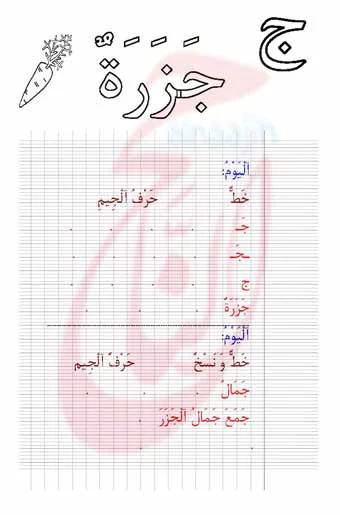 ج
جَزَرَةٌ
اَلْيَوْمُ:
خَطٌّ حَرْفُ اَلْجِيمِ
جَـ . . . .
ـجَـ . . . .
ج . . . .
جَزَرَةٌ . . .
اَلْيَوْمُ:
خَطٌّ وَ نَسْخٌ حَرْفُ اَلْجِيمِ
جَمَالُ . . .
جَمَعَ جَمَالُ اَلْجَزَرَ .